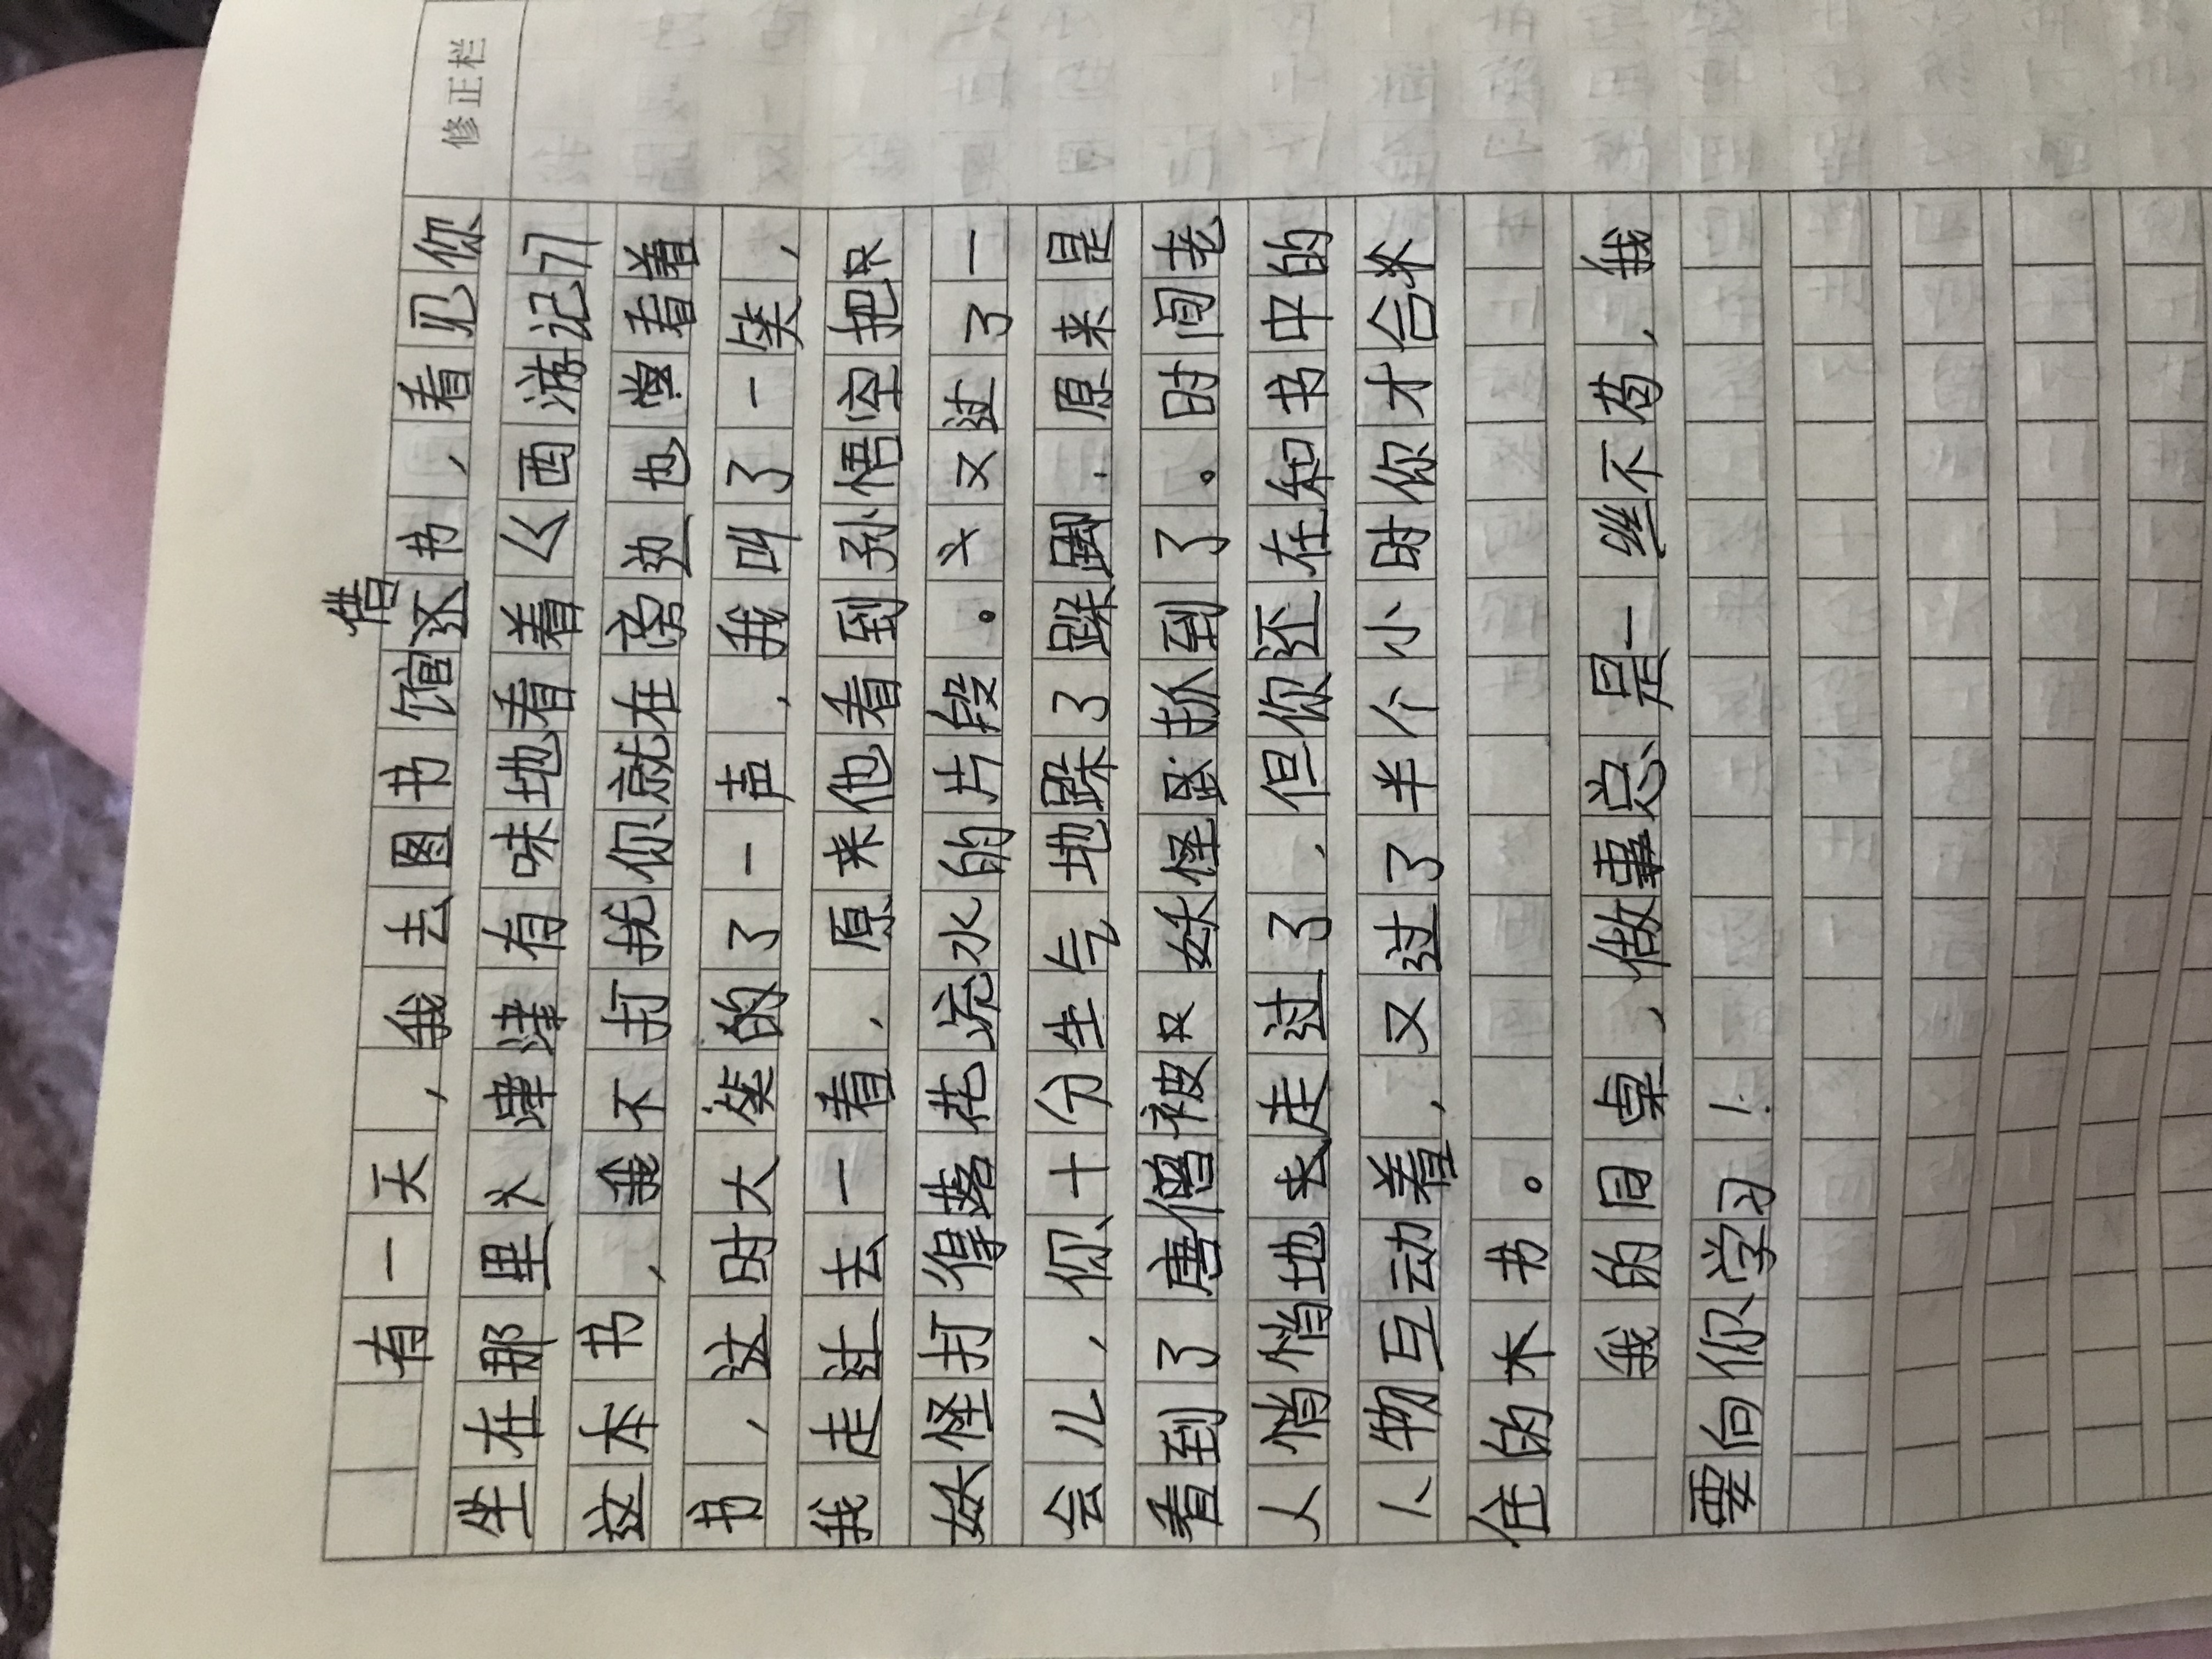 修正栏
有一天，我去图书馆借还书，看见你
坐在那里津津有味地看着《西游记》
这本书，我不打扰你就在旁边也看着
书，这时大笑的了一声，我叫了一笑，
我走过去一看，原来他看到孙悟空把
妖怪打得落花流水的片段。又过了一
会儿，你十分生气地跺了跺脚．原来是
看到了唐僧被妖怪抓到了。时间老
人悄悄地走过了，但你还在和书中的
人物互动着，又过了半个小时你才合
住的木书。
我的同桌，做事总是一丝不苟，我
要向你学习！